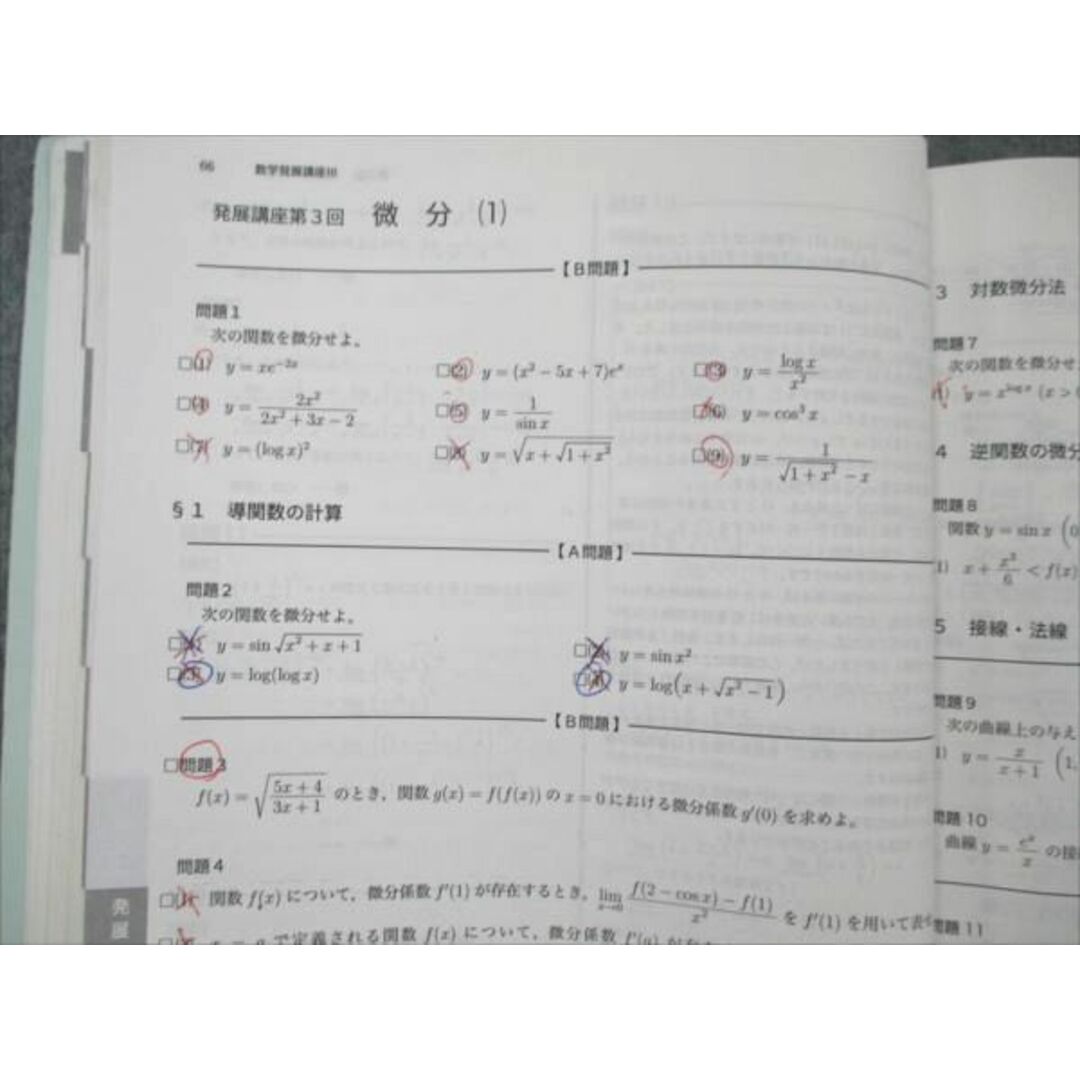 66 数学発展講座III
発展講座第3回 微 分 (1)
【B問題】
問題1
次の関数を微分せよ。
□(1) y = xe^{-2x} □(2) y = (x² − 5x + 7)e^x □(3) y = \frac{log x}{x²}
□(4) y = \frac{2x²}{2x² + 3x − 2} □(5) y = \frac{1}{sin x} □(6) y = cos³ x
□(7) y = (log x)² □(8) y = \sqrt{x + \sqrt{1 + x²}} □(9) y = \frac{1}{\sqrt{1 + x²} − x}
§1 導関数の計算
【A問題】
問題2
次の関数を微分せよ。
□(1) y = sin \sqrt{x² + x + 1} □(2) y = sin x²
□(3) y = log(log x) □(4) y = log(x + \sqrt{x² − 1})
【B問題】
□問題3
f(x) = \sqrt{\frac{5x + 4}{3x + 1}} のとき，関数 g(x) = f(f(x)) の x = 0 における微分係数 g′(0) を求めよ。
問題4
□(1) 関数 f(x) について，微分係数 f′(1) が存在するとき，lim_{x→0} \frac{f(2 − cos x) − f(1)}{x²} を f′(1) を用いて表
x = a で定義される関数 f(x) について，微分係数 f′(a) が
発展
3 対数微分法
問題7
次の関数を微分せ
y = x^{log x} (x >
4 逆関数の微分
問題8
関数 y = sin x (0
1) x + \frac{x³}{6} < f(x)
5 接線・法線
問題9
次の曲線上の与え
1) y = \frac{x}{x + 1} (1,
問題10
曲線 y = \frac{e^x}{x} の接
問題11